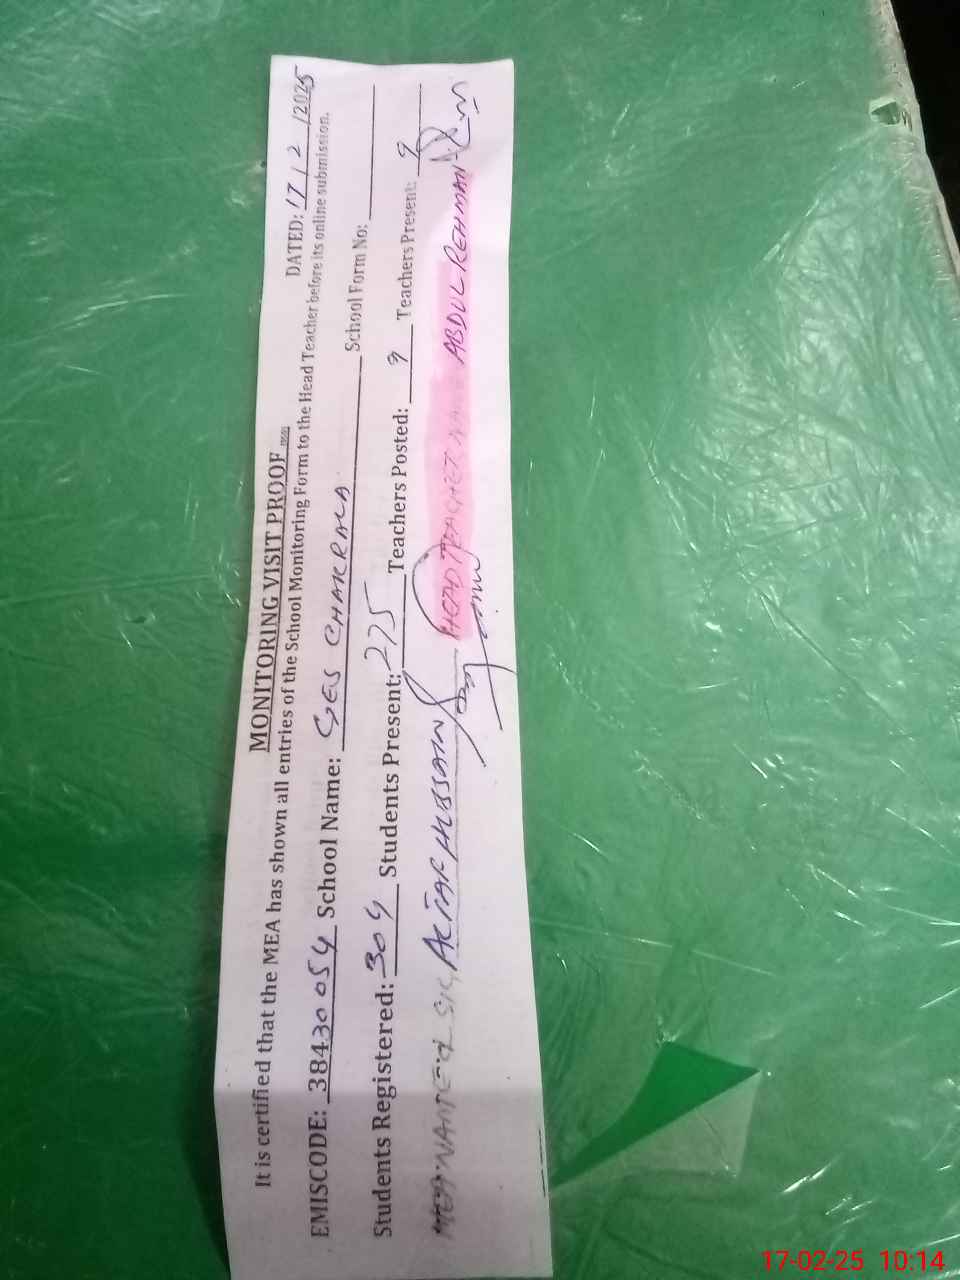 MONITORING VISIT PROOF
DATED: 17/2/2025
It is certified that the MEA has shown all entries of the School Monitoring Form to the Head Teacher before its online submission.
EMISCODE: 38430054 School Name: GES CHAKRALA School Form No:
Students Registered: 304 Students Present: 275 Teachers Posted: 9 Teachers Present: 9
MEA NAME & SIG ALTAF HUSSAIN HEAD TEACHER NAME ABDUL REHMAN
17-02-25 10:14